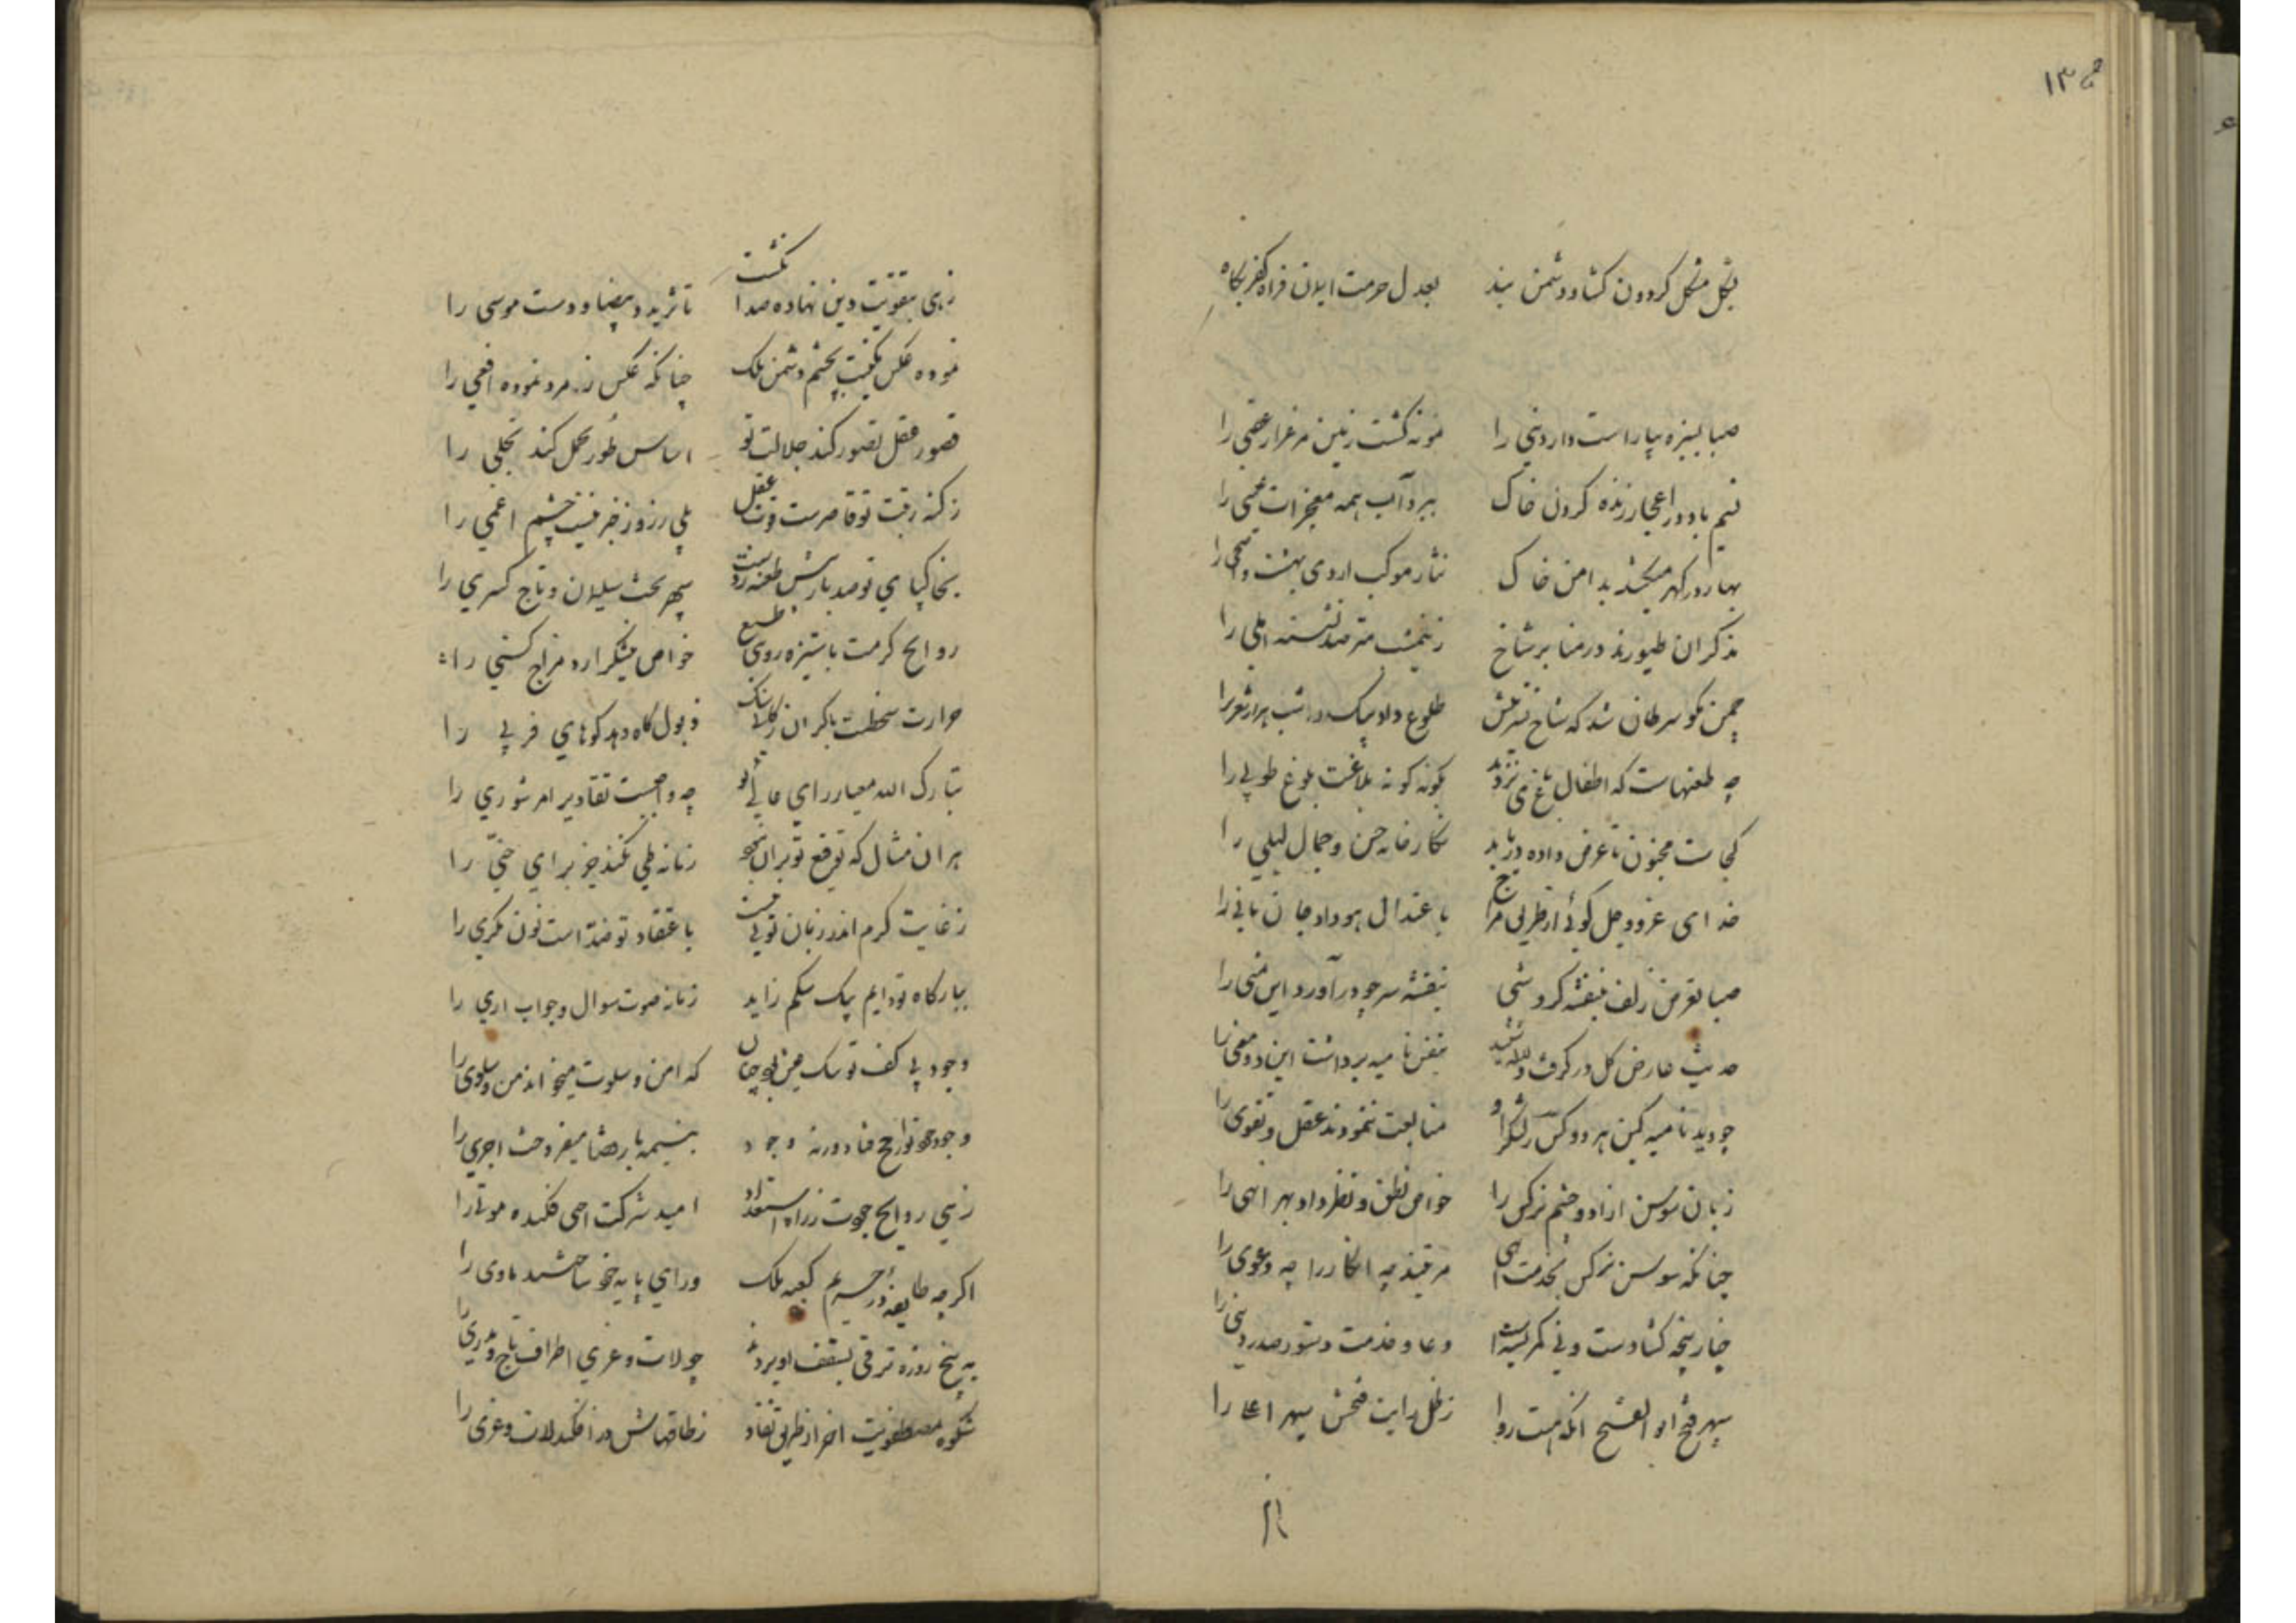 ۱۳
بکل مشکل کردون کشاد و دشمن بند بعدل حرمت ایلان فزاه کفر بکاه
صبا بسبزه بیاراست دار دنیی را نمونه کشت زمین مرغزار عقبی را
نسیم باد در اعجاز زنده کردن خاک ببرد آب همه معجزات عیسی را
بهار در و کهر میکشد بدامن خاک نثار موکب اردی بهشت و اضحی را
مذکران طیورند در منابر شاخ ز نیمشب مترصد نشسته املی را
چمن مکر سرطان شد که شاخ نسترنش طلوع داد بیک شب هزار شعری را
چه طعنهاست که اطفال باغ می نزنند بکونه کونه بلاغت بلوغ طوبی را
کجاست مجنون تا عرض داده دریابد نکارخانه حسن و جمال لیلی را
خدای عز و جل کوئی از طریق مزاج باعتدال هوا داد جان مانی را
صبا تعرض زلف بنفشه کرد شبی بنفشه سر چو درآورد این تمنی را
حدیث عارض کل در کرفت و لاله شنید بنفس نامیه برداشت این دو معنی را
چو دید نامیه کین هر دو کس ز لشکر او متابعت ننمودند عقل و تقوی را
زبان سوسن ازاد و چشم نرکس را خواص نطق و نظر داد بهر انهی را
چنانکه سوسن نرکس بخدمت انهی مرتبند چه انکار را چه دعوی را
چنار پنجه کشادست و نی کمر بستست دعا و خدمت دستور صدر دنیی را
سپهر فتح ابو الفتح انکه هست روا ز ظل رایت فتحش سپهر اعلا را
زهی
زهی بتقویت دین نهاده صد انکشت ماثر ید بیضا و دست موسی را
نموده عکس نکینت بچشم دشمن ملک چنانکه عکس زمرد نموده افعی را
قصور عقل تصور کند جلالت تو اساس طور تحمل کند تجلی را
ز کنه رتبت تو قاصرست قوت عقل بلی ز روز خبر نیست چشم اعمی را
بخاکپای تو صد بار بیش طعنه زدست سپهر تخت سلیمان و تاج کسری را
روایح کرمت با ستیزه رویی طبع خواص نیشکر ارد مزاج کسنی را
حرارت سخطت با کران رکابی سنک ذبول کاه دهد کوهای فربی را
تبارک الله معیار رای عالی تو چه واجبست تقادیر امر شوری را
بر ان مثال که توقیع تو بر ان نبود زمانه طی نکند جز برای حنی را
ز غایت کرم اندر زبان تو نی نیست باعتقاد تو ضد است نون مکری را
ببارکاه تو دایم بیک شکم زاید زمانه صوت سوال و جواب اری را
وجود بی کف تو تنک عیش بود چنان که امن و سلوت میخواند من و سلوی را
وجود جود تو رایج فتاد ورنه وجود بنیمه باز رضا میفروخت اجری را
زهی روایح جودت ز راه استعداد امید شرکت احی فکنده موتی را
اکرچه طایفه در حریم کعبه ملک ورای پایه خود ساختند ماوی را
به پنج روزه ترقی بسقف او بردند چو لات و عزی اطراف تاج و مدری را
شکوه مصطفویت اخر از طریق نفاد ز طاقهاش در افکند لات و عزی را